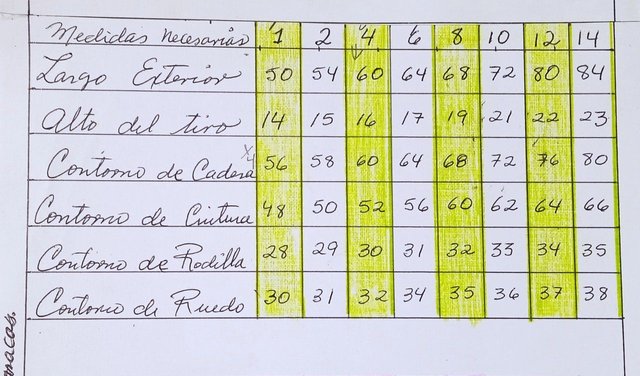 Medidas necesarias 1 2 4 6 8 10 12 14
Largo Exterior 50 54 60 64 68 72 80 84
Alto del tiro 14 15 16 17 19 21 22 23
Contorno de Cadera 56 58 60 64 68 72 76 80
Contorno de Cintura 48 50 52 56 60 62 64 66
Contorno de Rodilla 28 29 30 31 32 33 34 35
Contorno de Ruedo 30 31 32 34 35 36 37 38